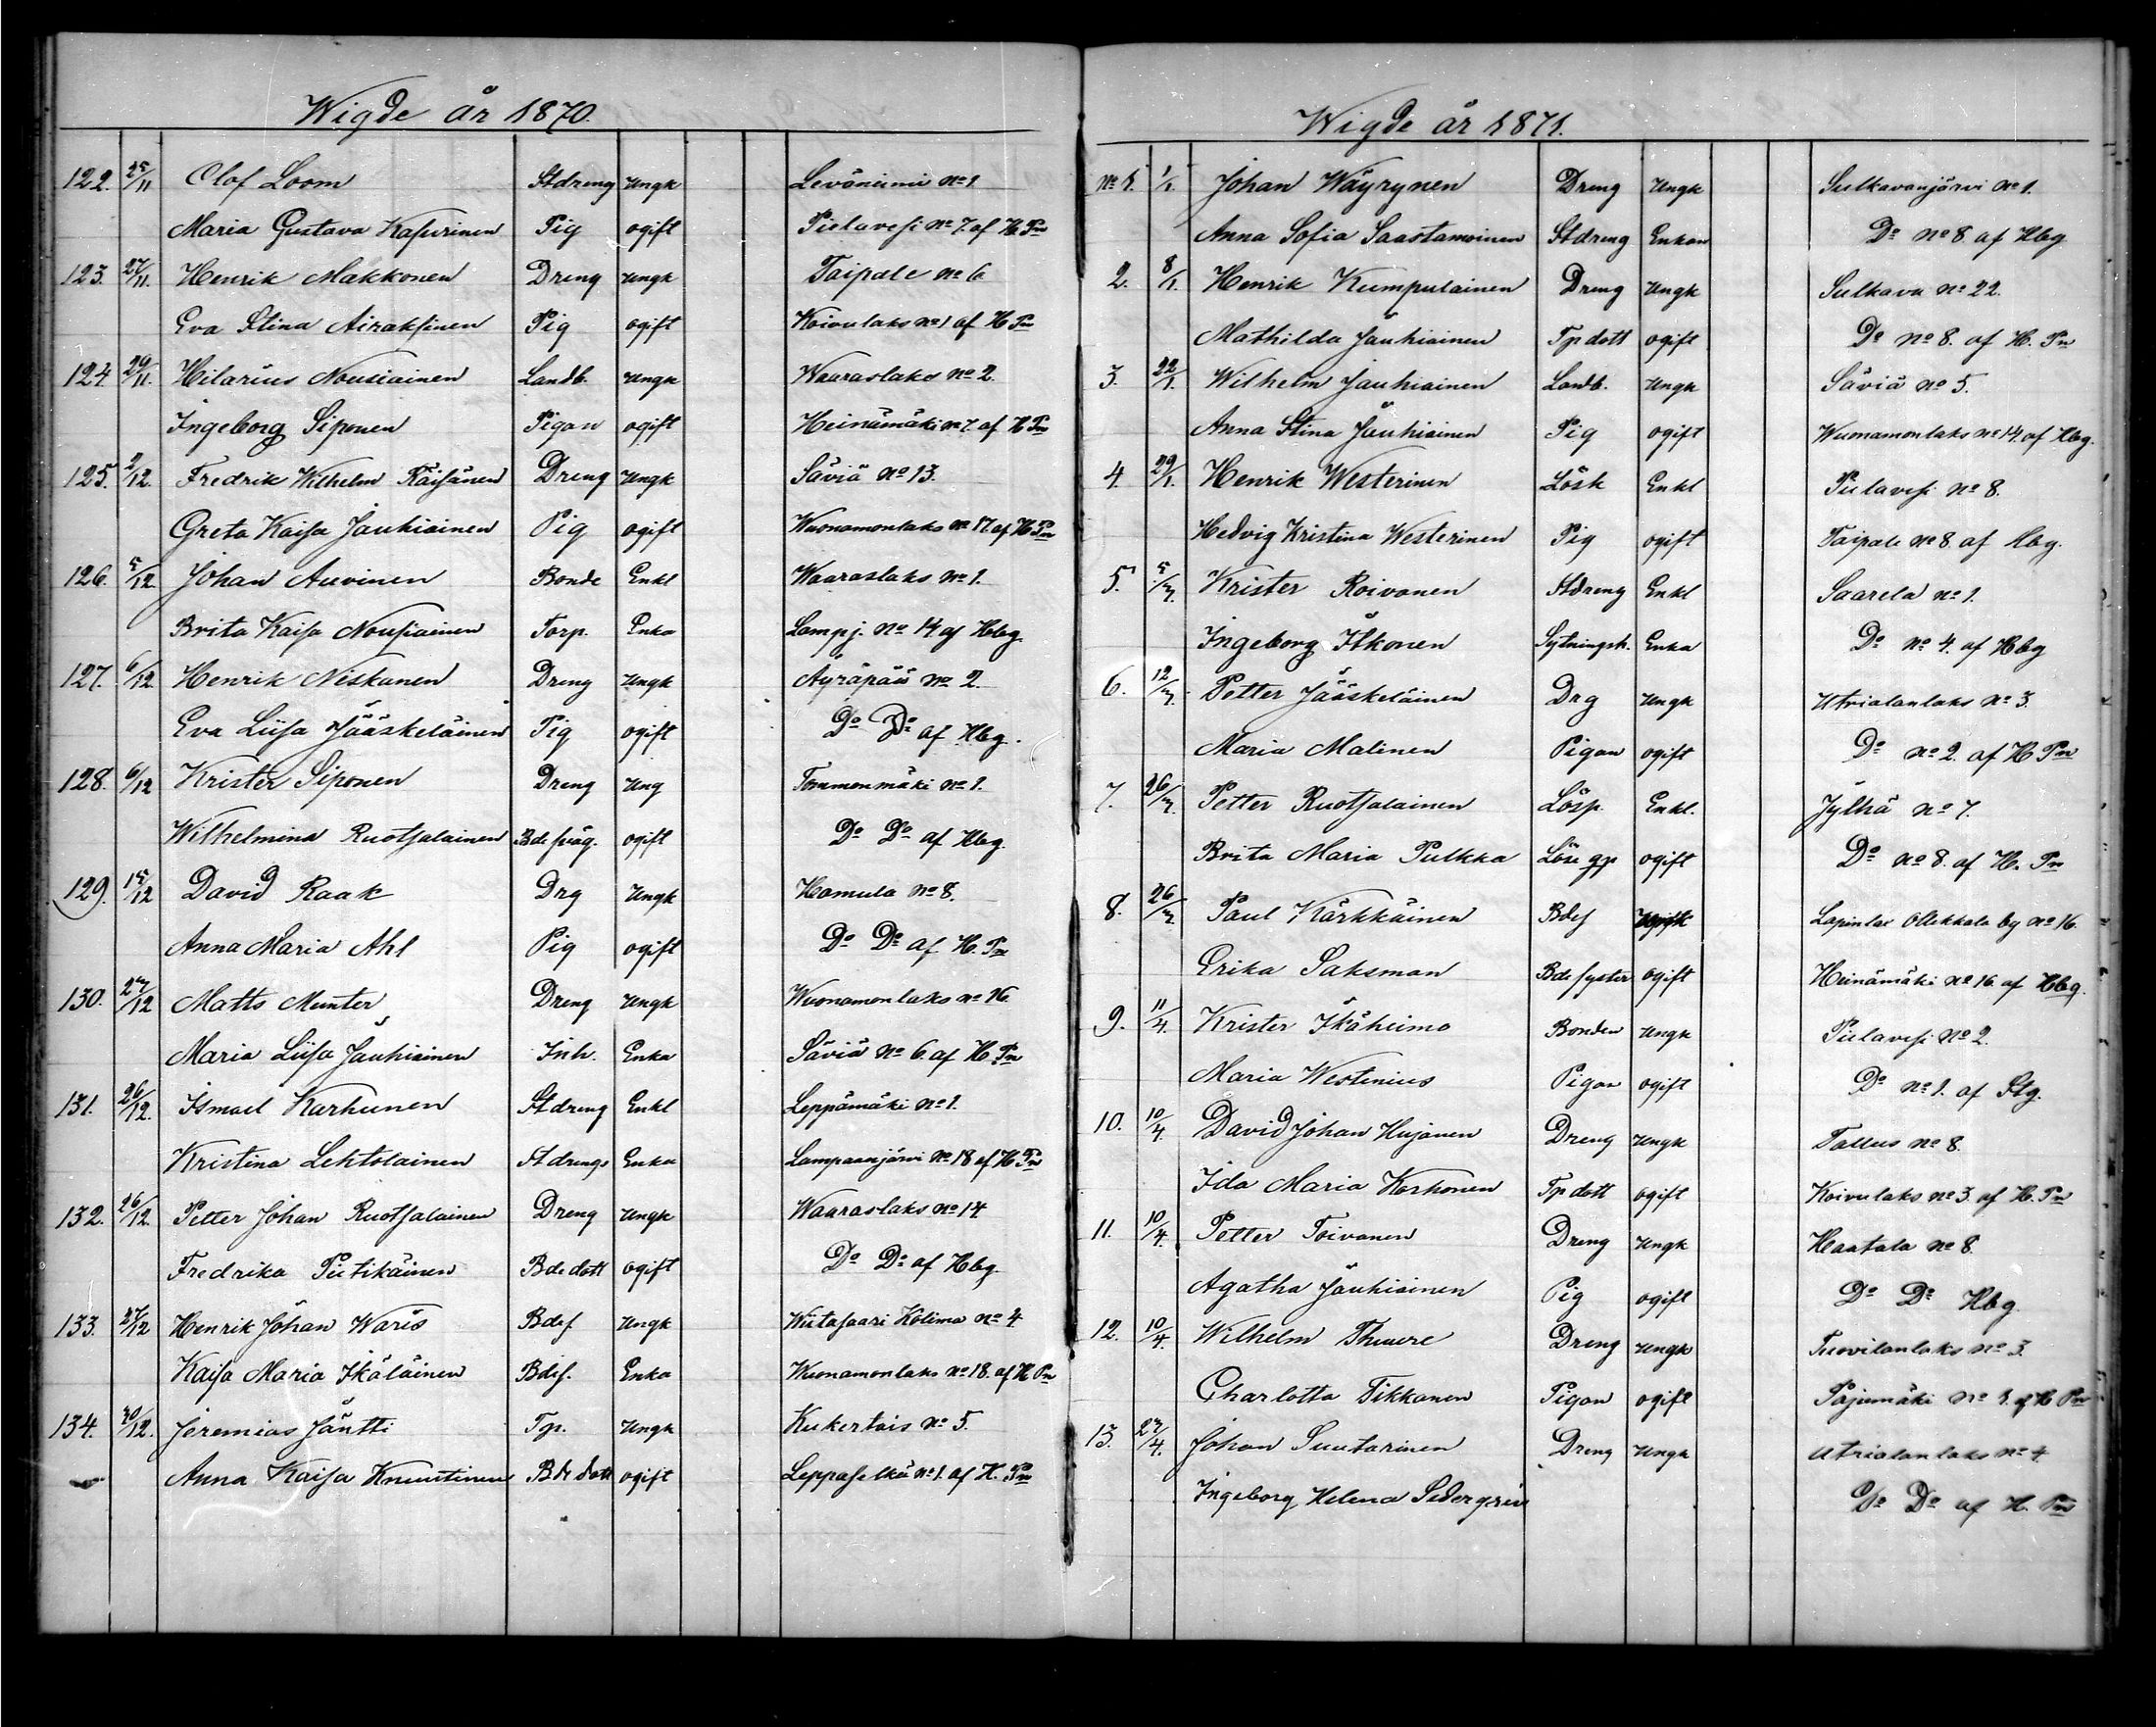 Wigde år 1870.
122. 25/11 Olof Loom Stdreng Ungk Leväniemi No 1
Maria Gustava Kasurinen Pig ogift Pielavesi No 7. af H. Pn
123. 27/11. Henrik Makkonen Dreng Ungk Taipale No 6
Eva Stina Airaksinen Pig ogift Koivulaks No 1 af H. Pn
124. 29/11. Hilarius Nousiainen Landb. Ungk Waaraslaks No 2.
Ingeborg Siponen Pigan ogift Heinämäki No 7. af H Pn
125. 2/12. Fredrik Wilhelm Räisänen Dreng Ungk Säviä No 13.
Greta Kaisa Jauhiainen Pig ogift Wuonamonlaks No 17. af H Pn
126. 5/12 Johan Auvinen Bonde Enkl Waaraslaks No 1.
Brita Kaisa Nousiainen Torp. Enka Lampj. No 14 af Hbg.
127. 6/12 Henrik Niskanen Dreng Ungk Äyräpää No 2.
Eva Liisa Jääskeläinen Pig ogift Do Do af Hbg.
128. 6/12 Krister Siponen Dreng Ung Tommonmäki No 1.
Wilhelmina Ruotsalainen Bde ogift Do Do af Hbg.
129. 15/12 David Raak Drg Ungk Hamula No 8.
Anna Maria Ahl Pig ogift Do Do af H. Pn
130. 27/12 Matts Munter Dreng Ungk Wuonamonlaks No 16.
Maria Liisa Jauhiainen Inh. Enka Säviä No 6. af H. Pn
131. 26/12. Ismael Karhunen Stdreng Enkl Leppämäki No 1.
Kristina Lehtolainen Stdrengs Enka Lampaanjärvi No 18 af H Pn
132. 26/12. Petter Johan Ruotsalainen Dreng Ungk Waaraslaks No 14
Fredrika Piitikäinen Bdedott ogift Do Do af Hbg.
133. 27/12 Henrik Johan Waris Bdes Ungk Wiitasaari Kolima No 4
Kaisa Maria Ikäläinen Bdes. Enka Wuonamonlaks No 18. af H Pn
134. 30/12. Jeremias Jäntti Tp. Ungk Kukertais No 5.
Anna Kaisa Knuutinen Bde dott ogift Leppäselkä No 1. af H. Pn
Wigde år 1871.
No 1. 1/1. Johan Wäyrynen Dreng Ungk Sulkavanjärvi No 1.
Anna Sofia Saastamoinen Stdreng Enkan Do No 8. af Hbg
2. 8/1. Henrik Kumpulainen Dreng Ungk Sulkava No 22.
Mathilda Jauhiainen Tpdott ogift Do No 8. af H. Pn
3. 22/1. Wilhelm Jauhiainen Landb. Ungk Säviä No 5.
Anna Stina Jauhiainen Pig ogift Wuonamonlaks No 14. af Hbg.
4. 29/1. Henrik Westerinen Lösk Enkl Pielavesi No 8.
Hedvig Kristina Westerinen Pig ogift Taipale No 8. af Hbg.
5. 5/3. Krister Roivanen Stdreng Enkl Saarela No 1.
Ingeborg Itkonen Sytningsh. Enka Do No 4. af Hbg
6. 12/3. Petter Jääskeläinen Drg Ungk Utrialanlaks No 3.
Maria Malinen Pigan ogift Do No 2. af H Pn
7. 26/3. Petter Ruotsalainen Lösp. Enkl. Jylhä No 7.
Brita Maria Pulkka Lösegp ogift Do No 8. af H. Pn
8. 26/3. Paul Kärkkäinen Bdes Ungk Lapinlax Ollikkala by No 16.
Erika Saksman Bdesyster ogift Heinämäki No 16 af Hbg.
9. 11/4. Krister Ikäheimo Bonden Ungk Pielavesi No 2.
Maria Westenius Pigan ogift Do No 1. af Stg.
10. 10/4. David Johan Hujanen Dreng Ungk Tallus No 8.
Ida Maria Korhonen Tpdott ogift Koivulaks No 3. af H. Pn
11. 10/4. Petter Toivanen Dreng Ungk Haatala No 8.
Agatha Jauhiainen Pig ogift Do Do Hbg.
12. 10/4. Wilhelm Thuure Dreng Ungk Tuovilanlaks No 3.
Charlotta Tikkanen Pigan ogift Pajumäki No 1. af H Pn
13. 23/4. Johan Suutarinen Dreng Ungk Utrialanlaks No 4
Ingeborg Helena Sedergren Do Do af H. Pn